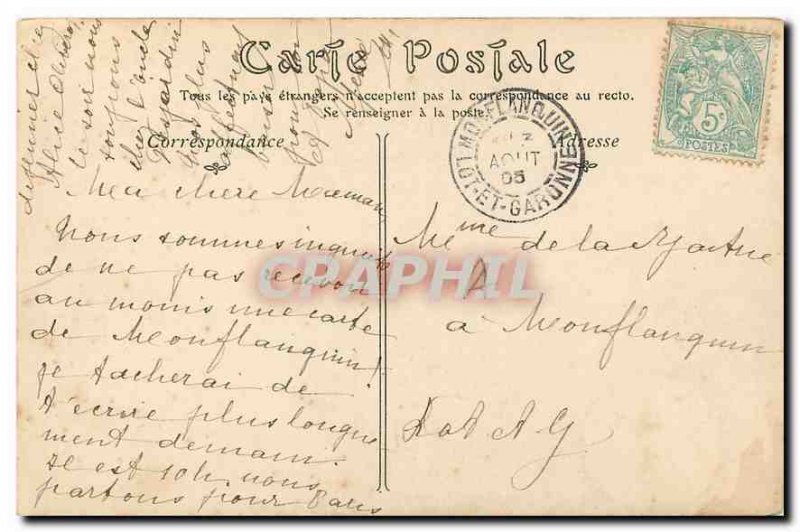 Carte Postale
Tous les pays étrangers n'acceptent pas la correspondance au recto.
Se renseigner à la poste.
Correspondance
Adresse
MONFLANQUIN
AOUT
05
LOT-ET-GARONNE
5c
POSTES
Ma chère Maman
Nous sommes inquiets
de ne pas recevoir
au moins une carte
de Monflanquin !
je tacherai de
t'écrire plus longue
ment demain.
il est 10h. nous
partons pour Paris
ce soir nous
soupons
chez l'oncle
plus
affectueux
Mme de la
à Monflanquin
Lot et G
CPAPHIL